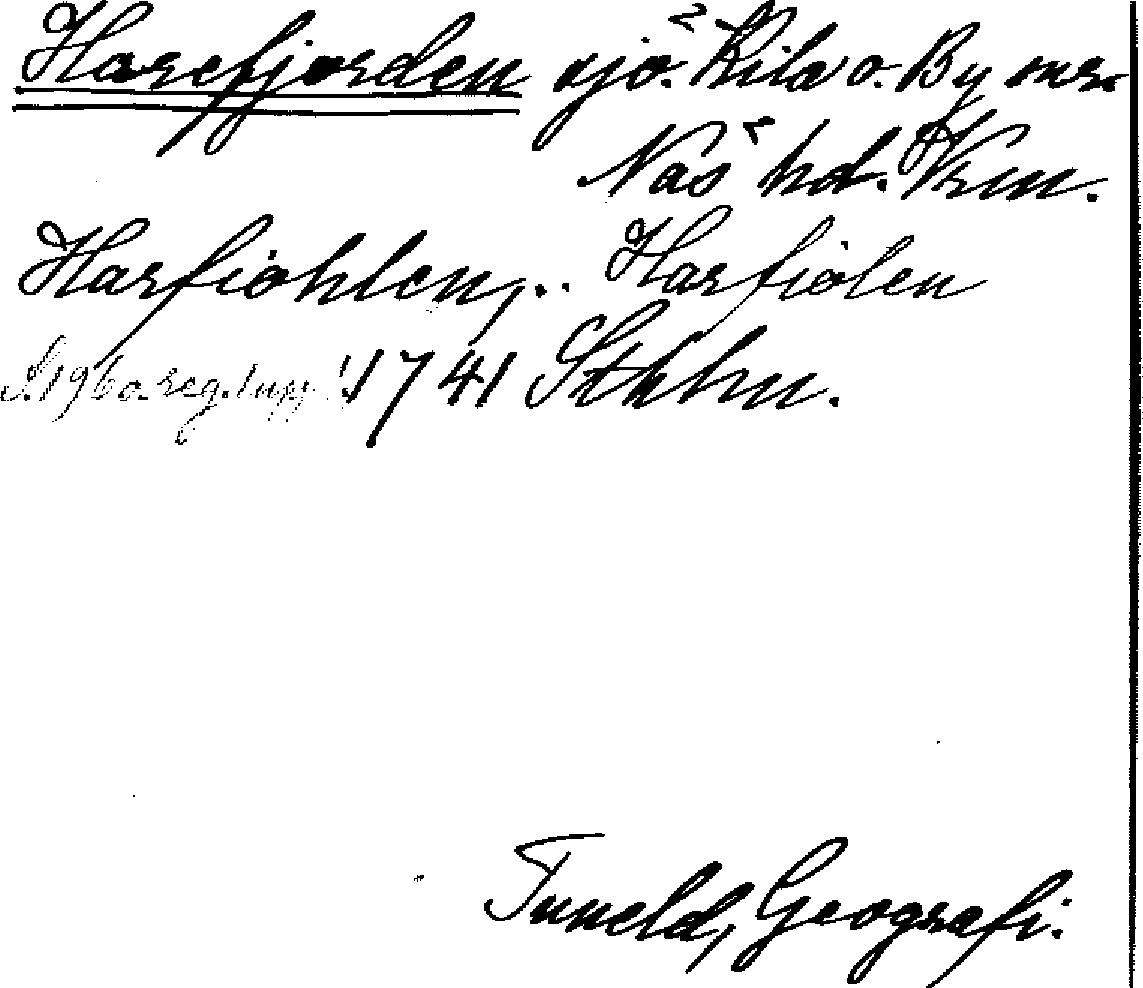 Harefjorden sjö. Kila o. By snr.
Näs hd. Vrm.
Harfiohlen, .. Harfiolen
S. 1960. reg. 1741 Sthhn.
Tuneld, Geografi.